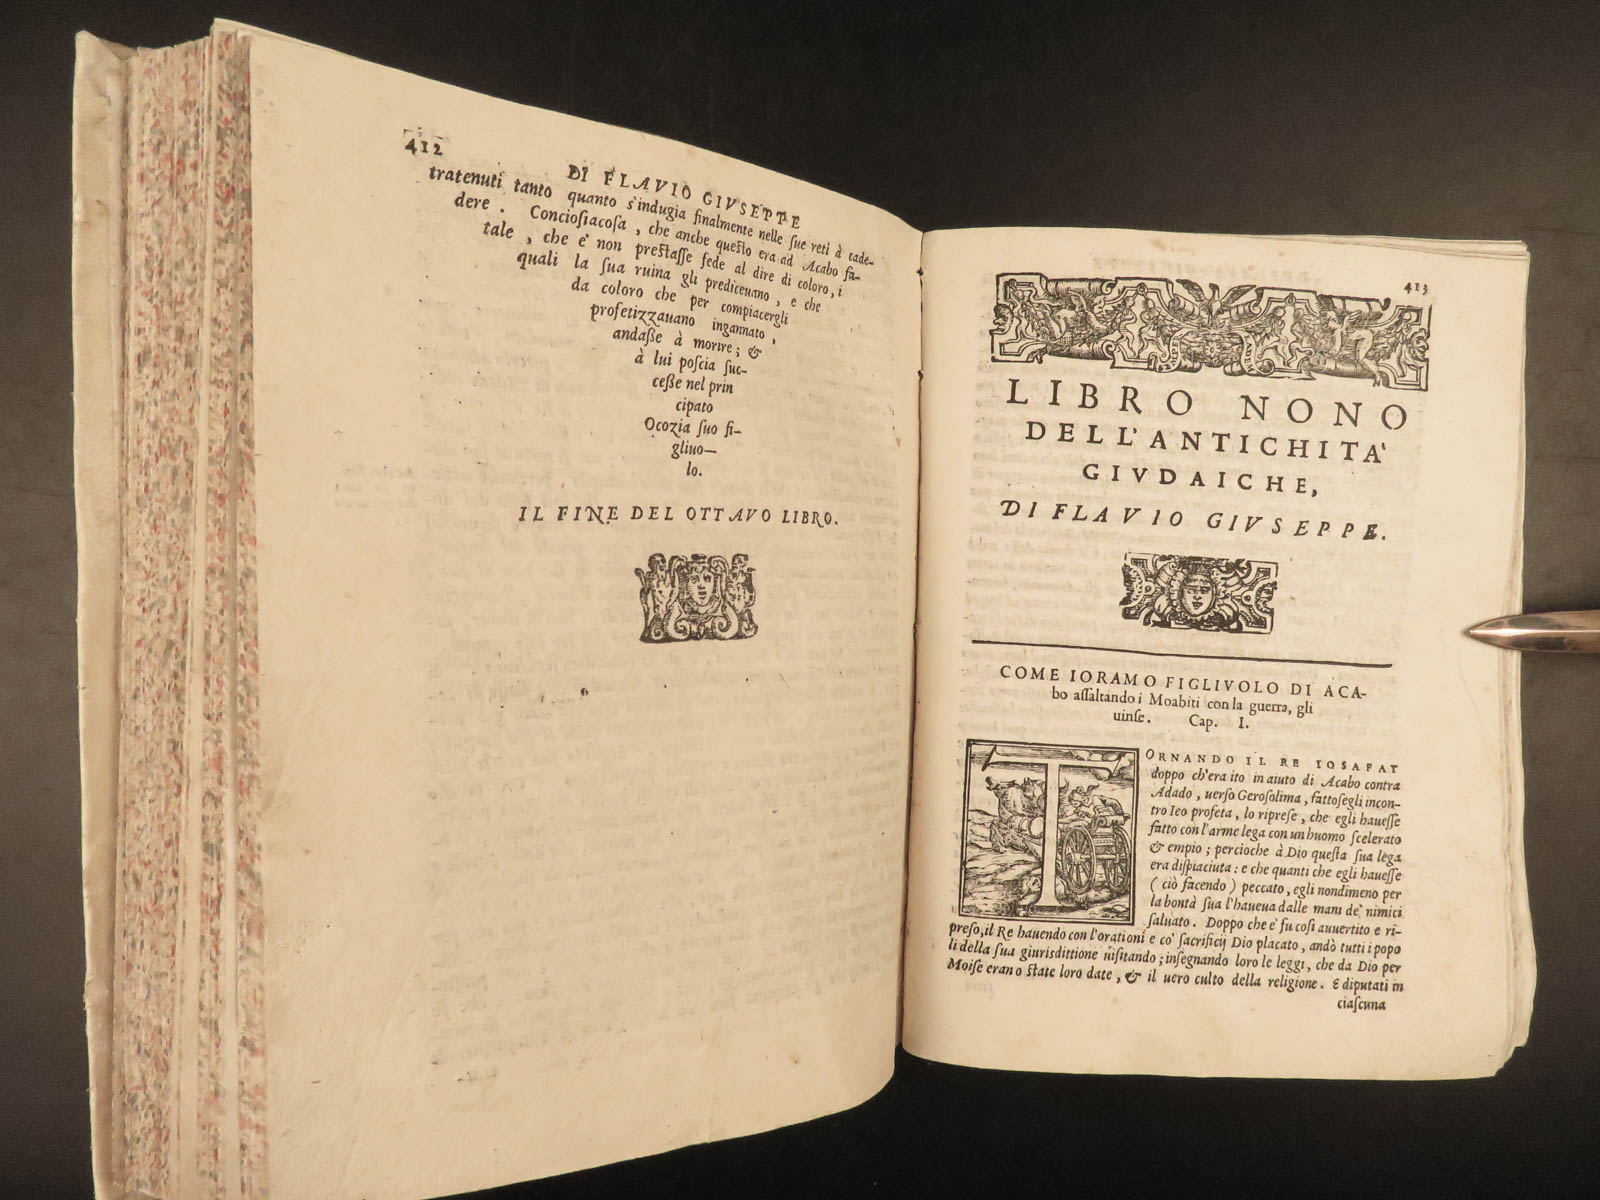 412
DI FLAVIO GIVSEPPE
tratenuti tanto quanto s'indugia finalmente nelle ſue reti à cade-
dere . Concioſiacoſa , che anche queſto era ad Acabo fa-
tale , che è non preſtaſſe fede al dire di coloro, i
quali la ſua ruina gli prediceuano , e che
da coloro che per compiacergli
profetizzauano ingannato ,
andaſſe à morire ; &
à lui poſcia ſuc-
ceſſe nel prin
cipato
Ocozia ſuo fi-
gliuo—
lo.
IL FINE DEL OTTAVO LIBRO.
413
LIBRO NONO
DELL'ANTICHITA'
GIVDAICHE,
DI FLAVIO GIVSEPPE.
COME IORAMO FIGLIVOLO DI ACA-
bo aſſaltando i Moabiti con la guerra, gli
uinſe. Cap. I.
TORNANDO IL RE IOSAFAT
doppo ch'era ito in aiuto di Acabo contra
Adado , uerſo Geroſolima , fattoſegli incon-
tro Ieo profeta , lo ripreſe , che egli haueſſe
fatto con l'arme lega con un huomo ſcelerato
& empio ; percioche à Dio queſta ſua lega
era diſpiaciuta : e che quanti che egli haueſſe
( ciò facendo ) peccato , egli nondimeno per
la bontà ſua l'haueua dalle mani de' nimici
ſaluato . Doppo che e' fu coſi auuertito e ri-
preſo, il Re hauendo con l'orationi e co' ſacrificij Dio placato , andò tutti i popo
li della ſua giurisdittione uiſitando ; inſegnando loro le leggi , che da Dio per
Moiſe erano ſtate loro date , & il uero culto della religione . E diputati in
ciaſcuna